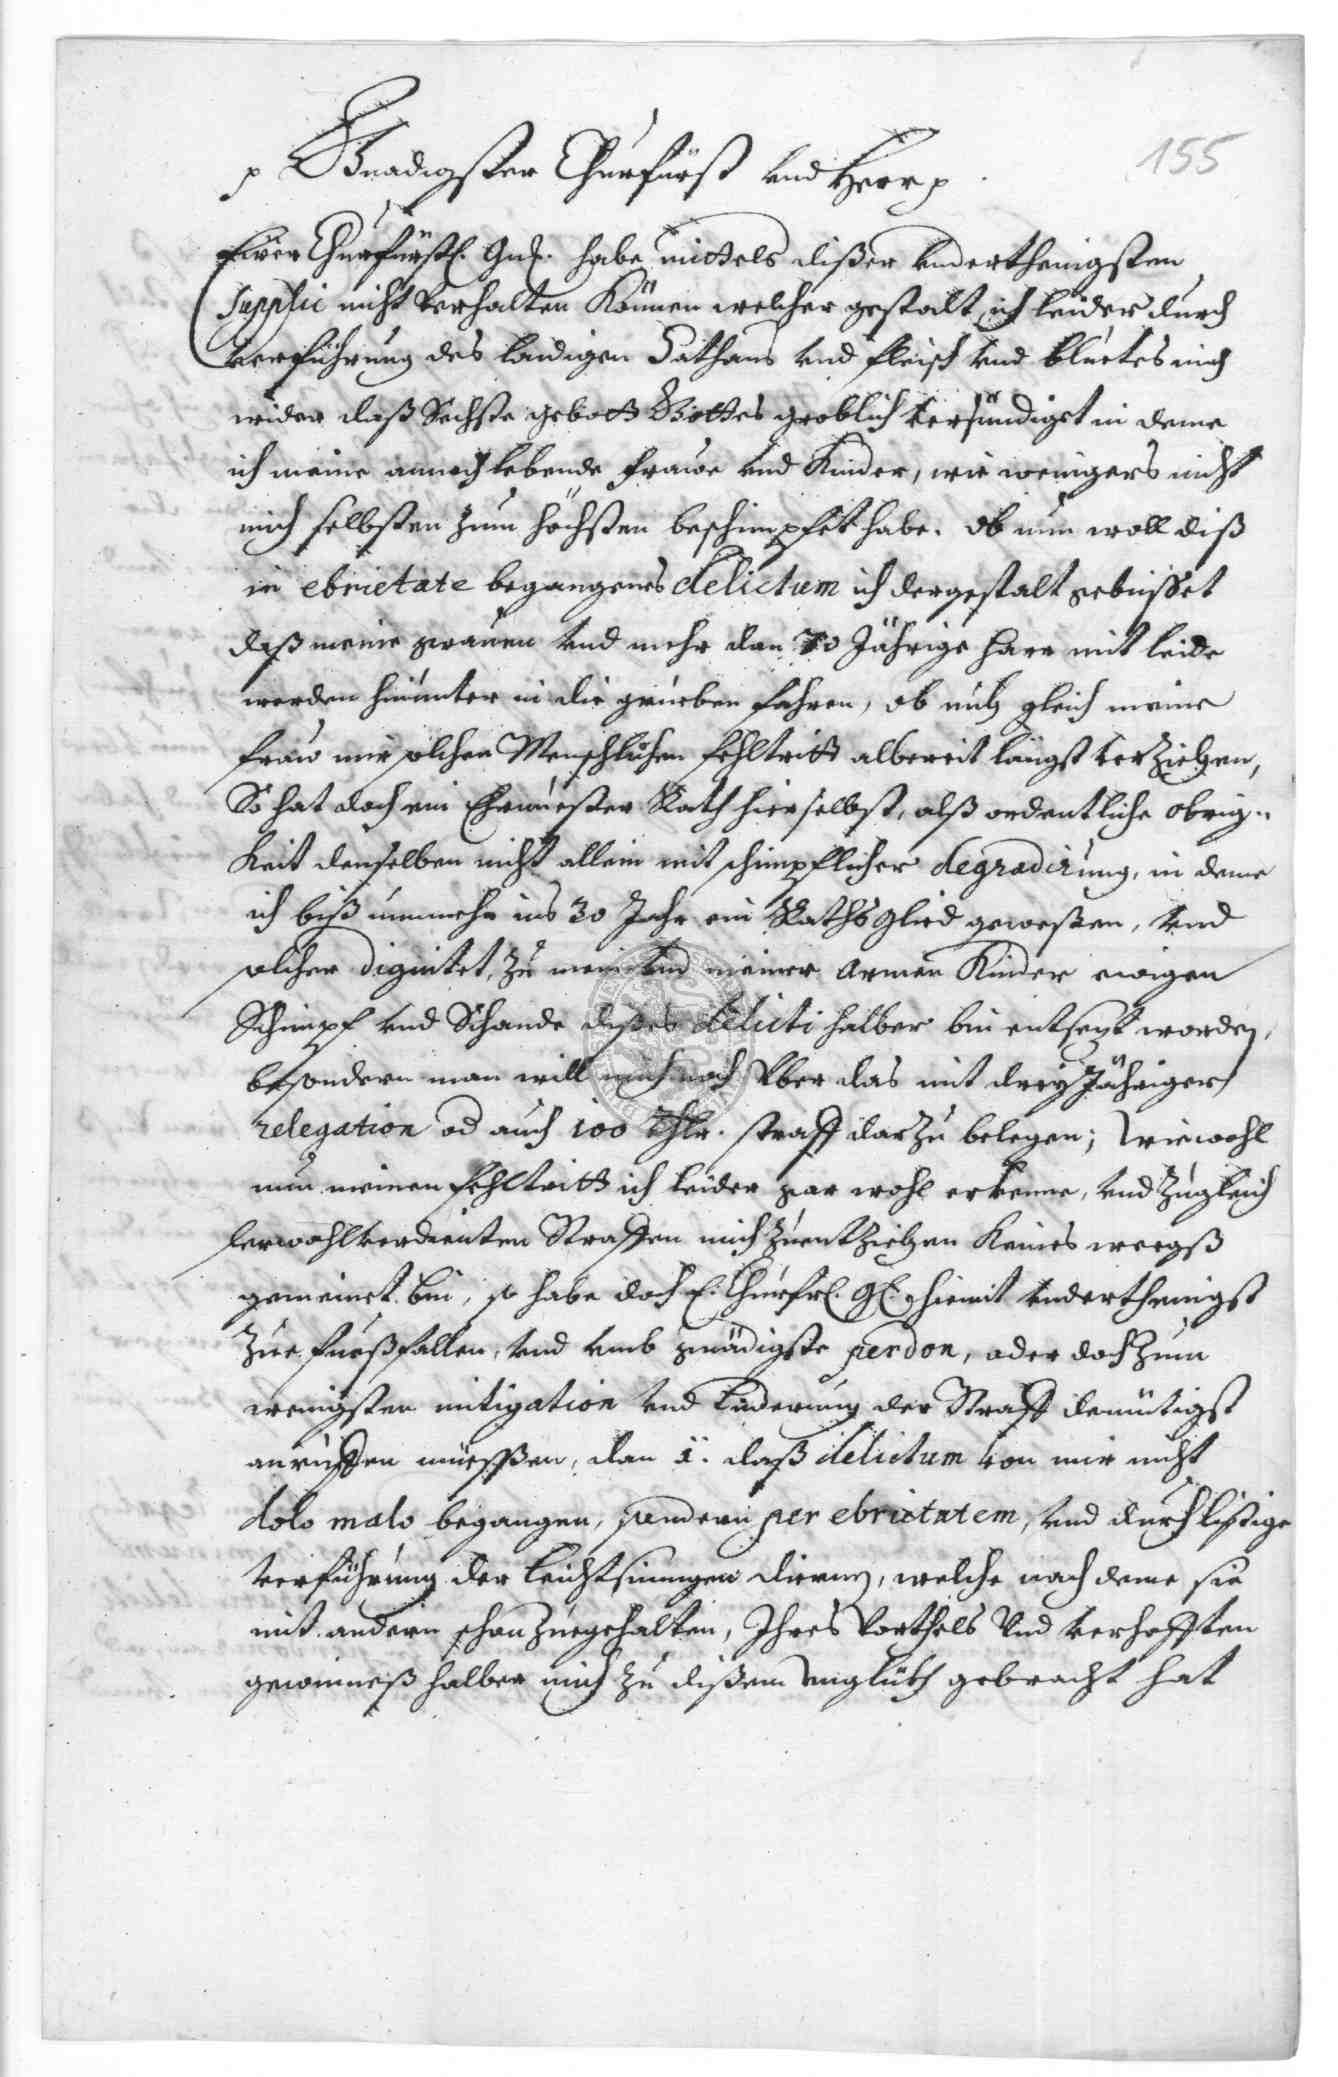 155
p Gnadigster Churfürst vnd Herr p
Ewer Churfürstl. Gnd. habe mittels dißer vnderthenigsten
Supplic nicht verhalten können welcher gestalt ich leider durch
verführung des laidigen Sathans vnd fleisch vnd bluetes mich
wider daß Sechste gebott Gottes groblich versündiget in deme
ich meine annoch lebende frawe vnd Kinder, wie wenigers nicht
mich selbsten zum höchsten beschimpfet habe. Ob nun woll diß
in ebrietate begangenes delictum ich dergestalt gebüsset
daß meine grauen vnd mehr dan 70 Jährige harr mit leide
werden hinunter in die grueben fahren, ob mich gleich meine
fraw mir solchen Menschlichen fehltritt albereit längst verziehen,
So hat doch ein Ehrnuester Rath hierselbst, alß ordentliche obrig-
keit denselben nicht allein mit schimpflicher degradirung, in deme
ich biß nunmehr ins 30 Jahr ein RathsGlied gewesßen, vnd
solcher dignitet, zu mein vnd meiner armen Kinder ewigen
Schimpf vnd Schande dißes delicti halber bin entsezt worden,
besondern man will mich noch vber das mit dreyJähriger
relegation od auch 100 thlr. straff darzu belegen; Wiewohl
nun meinen fehltritt ich leider gar wohl erkenne, vnd zugleich
der wohlverdienten Straffen mich zuentziehen keines weegß
gemeinet bin, so habe doch E. Churfrl. Gl. hiemit vnderthenigst
zue fuesßfallen, vnd vmb gnädigste perdon, oder doch zum
wenigsten mitigation vnd linderung der Straff demütigst
anruffen müeßen, dan 1. daß delictum von mir nicht
dolo malo begangen, sondern per ebrietatem, vnd durch listige
verführung der leichtsinnigen dirnen, welche nach deme sie
mit andern schon zuegehalten, Ihres Vorthels Vnd verhofften
gewinneß halber mich zu dißem vnglückh gebracht hat